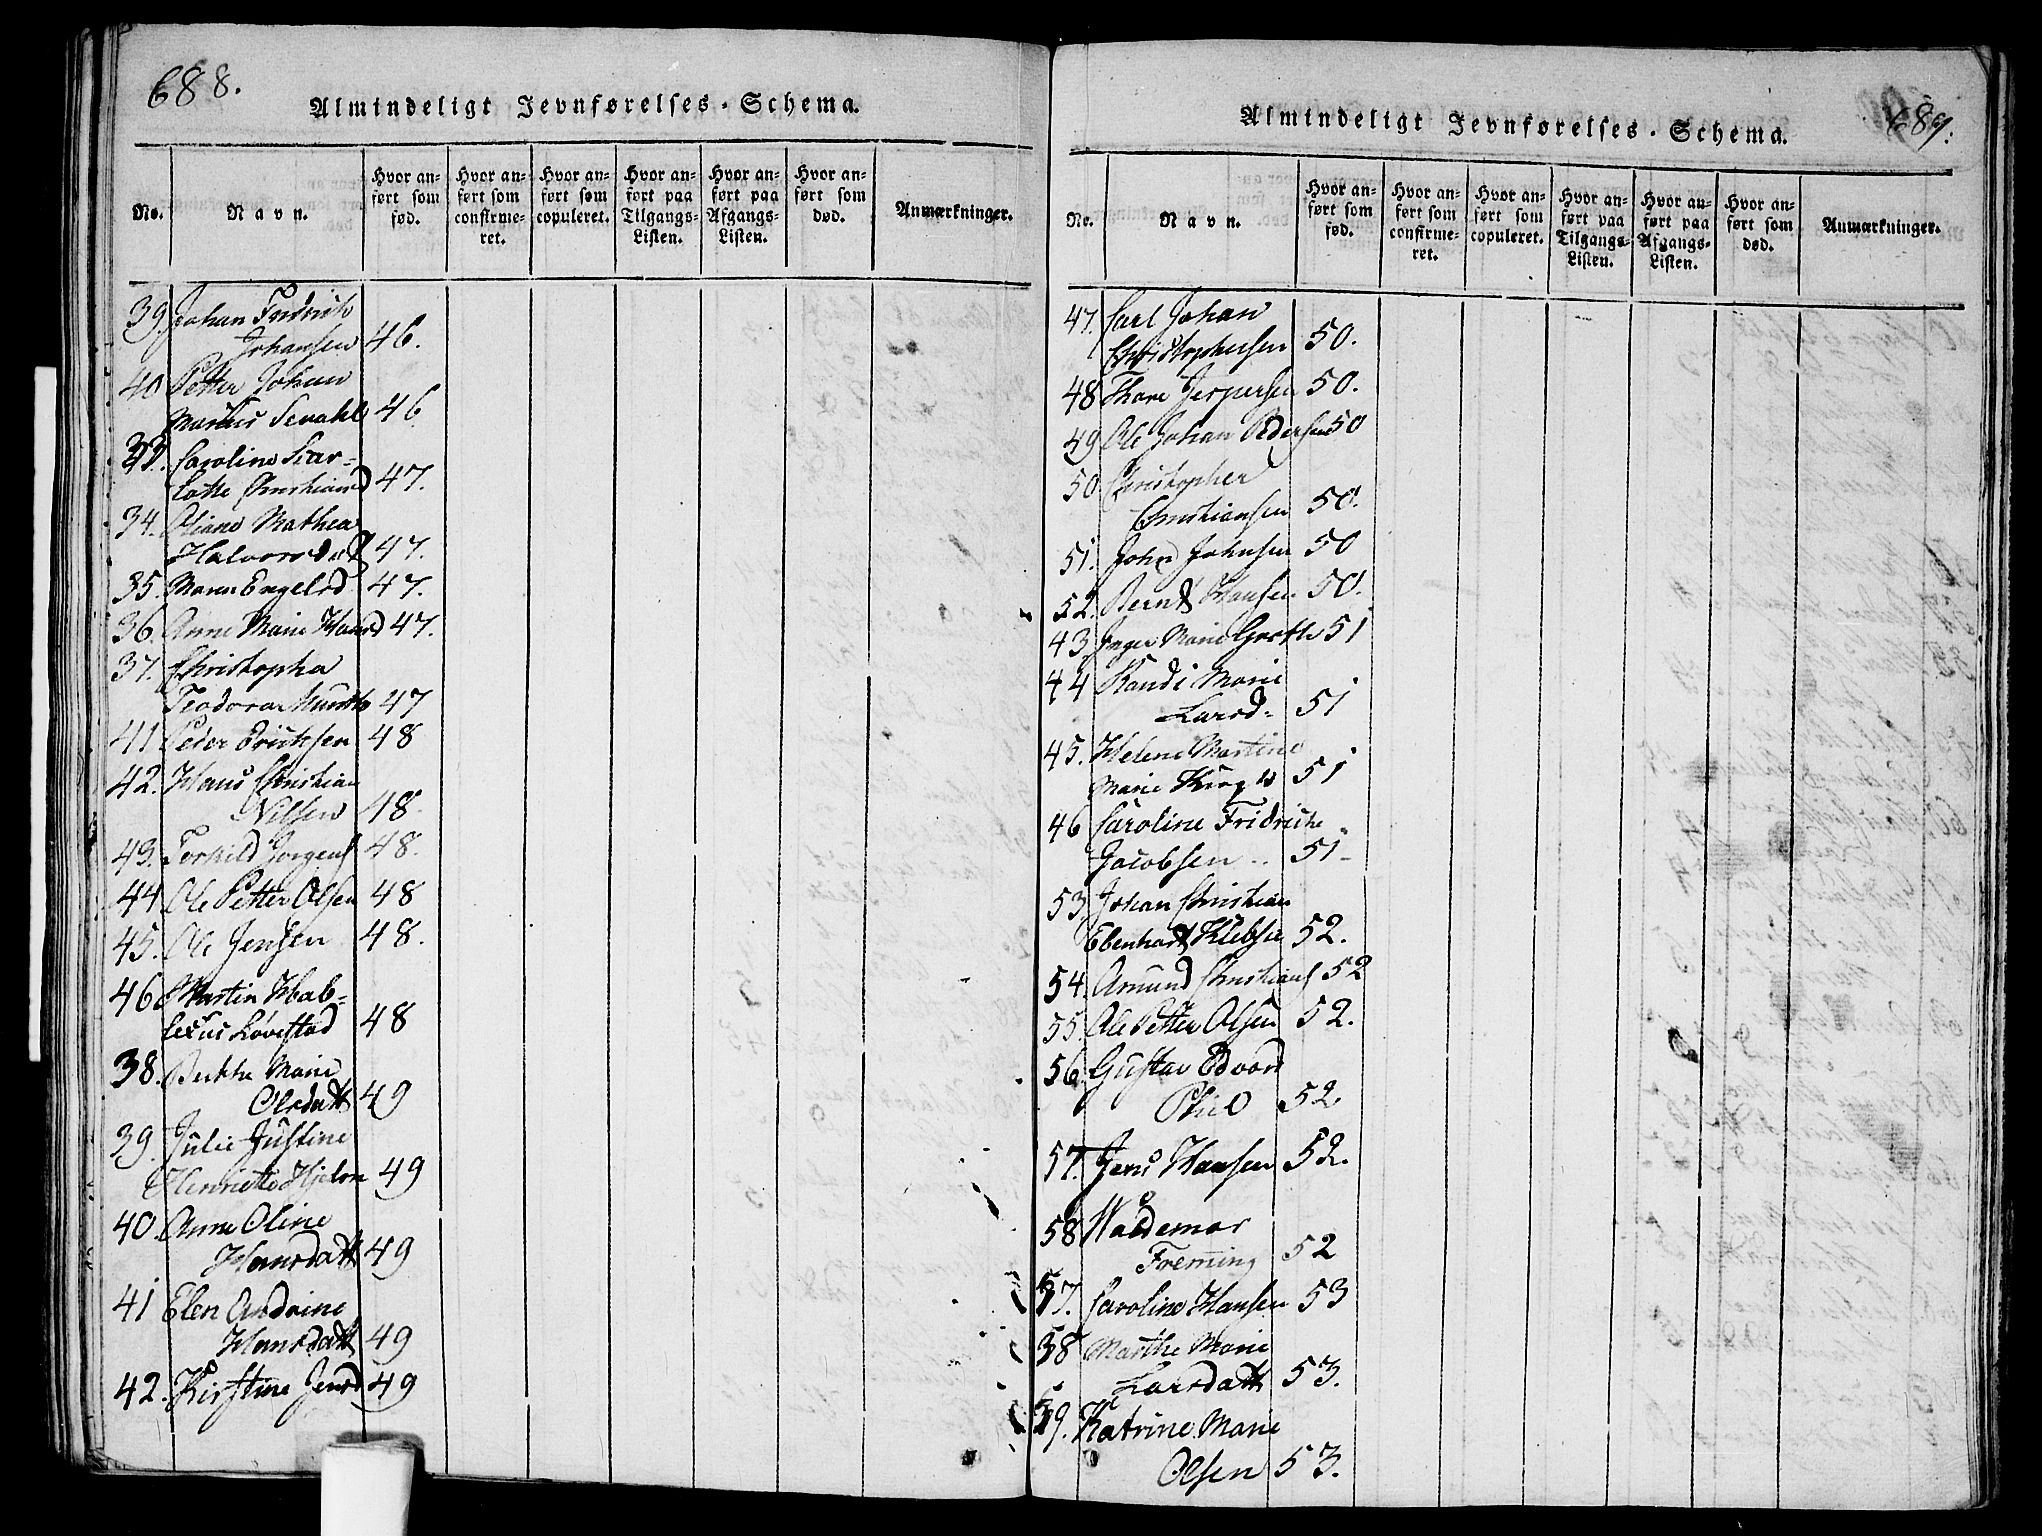 688.
Almindeligt Jevnførelses-Schema.
No.
Navn.
Hvor anført som fød.
Hvor anført som confirmeret.
Hvor anført som copuleret.
Hvor anført paa Tilgangs-Listen.
Hvor anført paa Afgangs-Listen.
Hvor anført som død.
Anmærkninger.
39. Johan Fredrich
Johansen 46.
40 Petter Johan
Marius 46.
33. Caroline Scar-
lotte Christiansd 47.
34. Oliane Mathea
Halvorsdatt 47.
35. Maren Engelsd 47.
36. Anne Marie Hansd 47.
37. Christopha
Teodora 47
41 Peder Erichsen 48
42. Hans Christian
Nilsen 48.
43. Torkild Jorgens 48.
44 Ole Petter Olsen 48
45. Ole Jensen 48.
46 Martin Hab-
Løvestad 48
38. Berthe Marie
Olsdatt 49
39. Julie Justine
Henriette Hjelm 49
40. Anne Oline
Hansdatt 49
41 Elen Andrine
Hansdatt 49
42. Kirstine Jensd 49
689.
Almindeligt Jevnførelses-Schema.
No.
Navn.
Hvor anført som fød.
Hvor anført som confirmeret.
Hvor anført som copuleret.
Hvor anført paa Tilgangs-Listen.
Hvor anført paa Afgangs-Listen.
Hvor anført som død.
Anmærkninger.
47. Carl Johan
Christophersen 50.
48 Thore Jespersen 50.
49 Ole Johan Pedersen 50
50 Christopher
Christiansen 50.
51. John Johnsen 50
52. Bernt Hansen 50.
43. Inger Marie Grothe 51
44 Randi Marie
Larsd- 51
45. Helene Martine
Marie 51
46 Caroline Fridriche
Jacobsen .. 51-
53. Johan Christian
Ebenhart 52.
54. Amund Christians 52
55. Ole Petter Olsen 52.
56. Gustav Edvard
52.
57. Jens Hansen 52.
58 Waldemar
52
57. Caroline Hansen 53
58 Marthe Marie
Larsdatt 53.
59. Katrine Marie
Olsen 53.